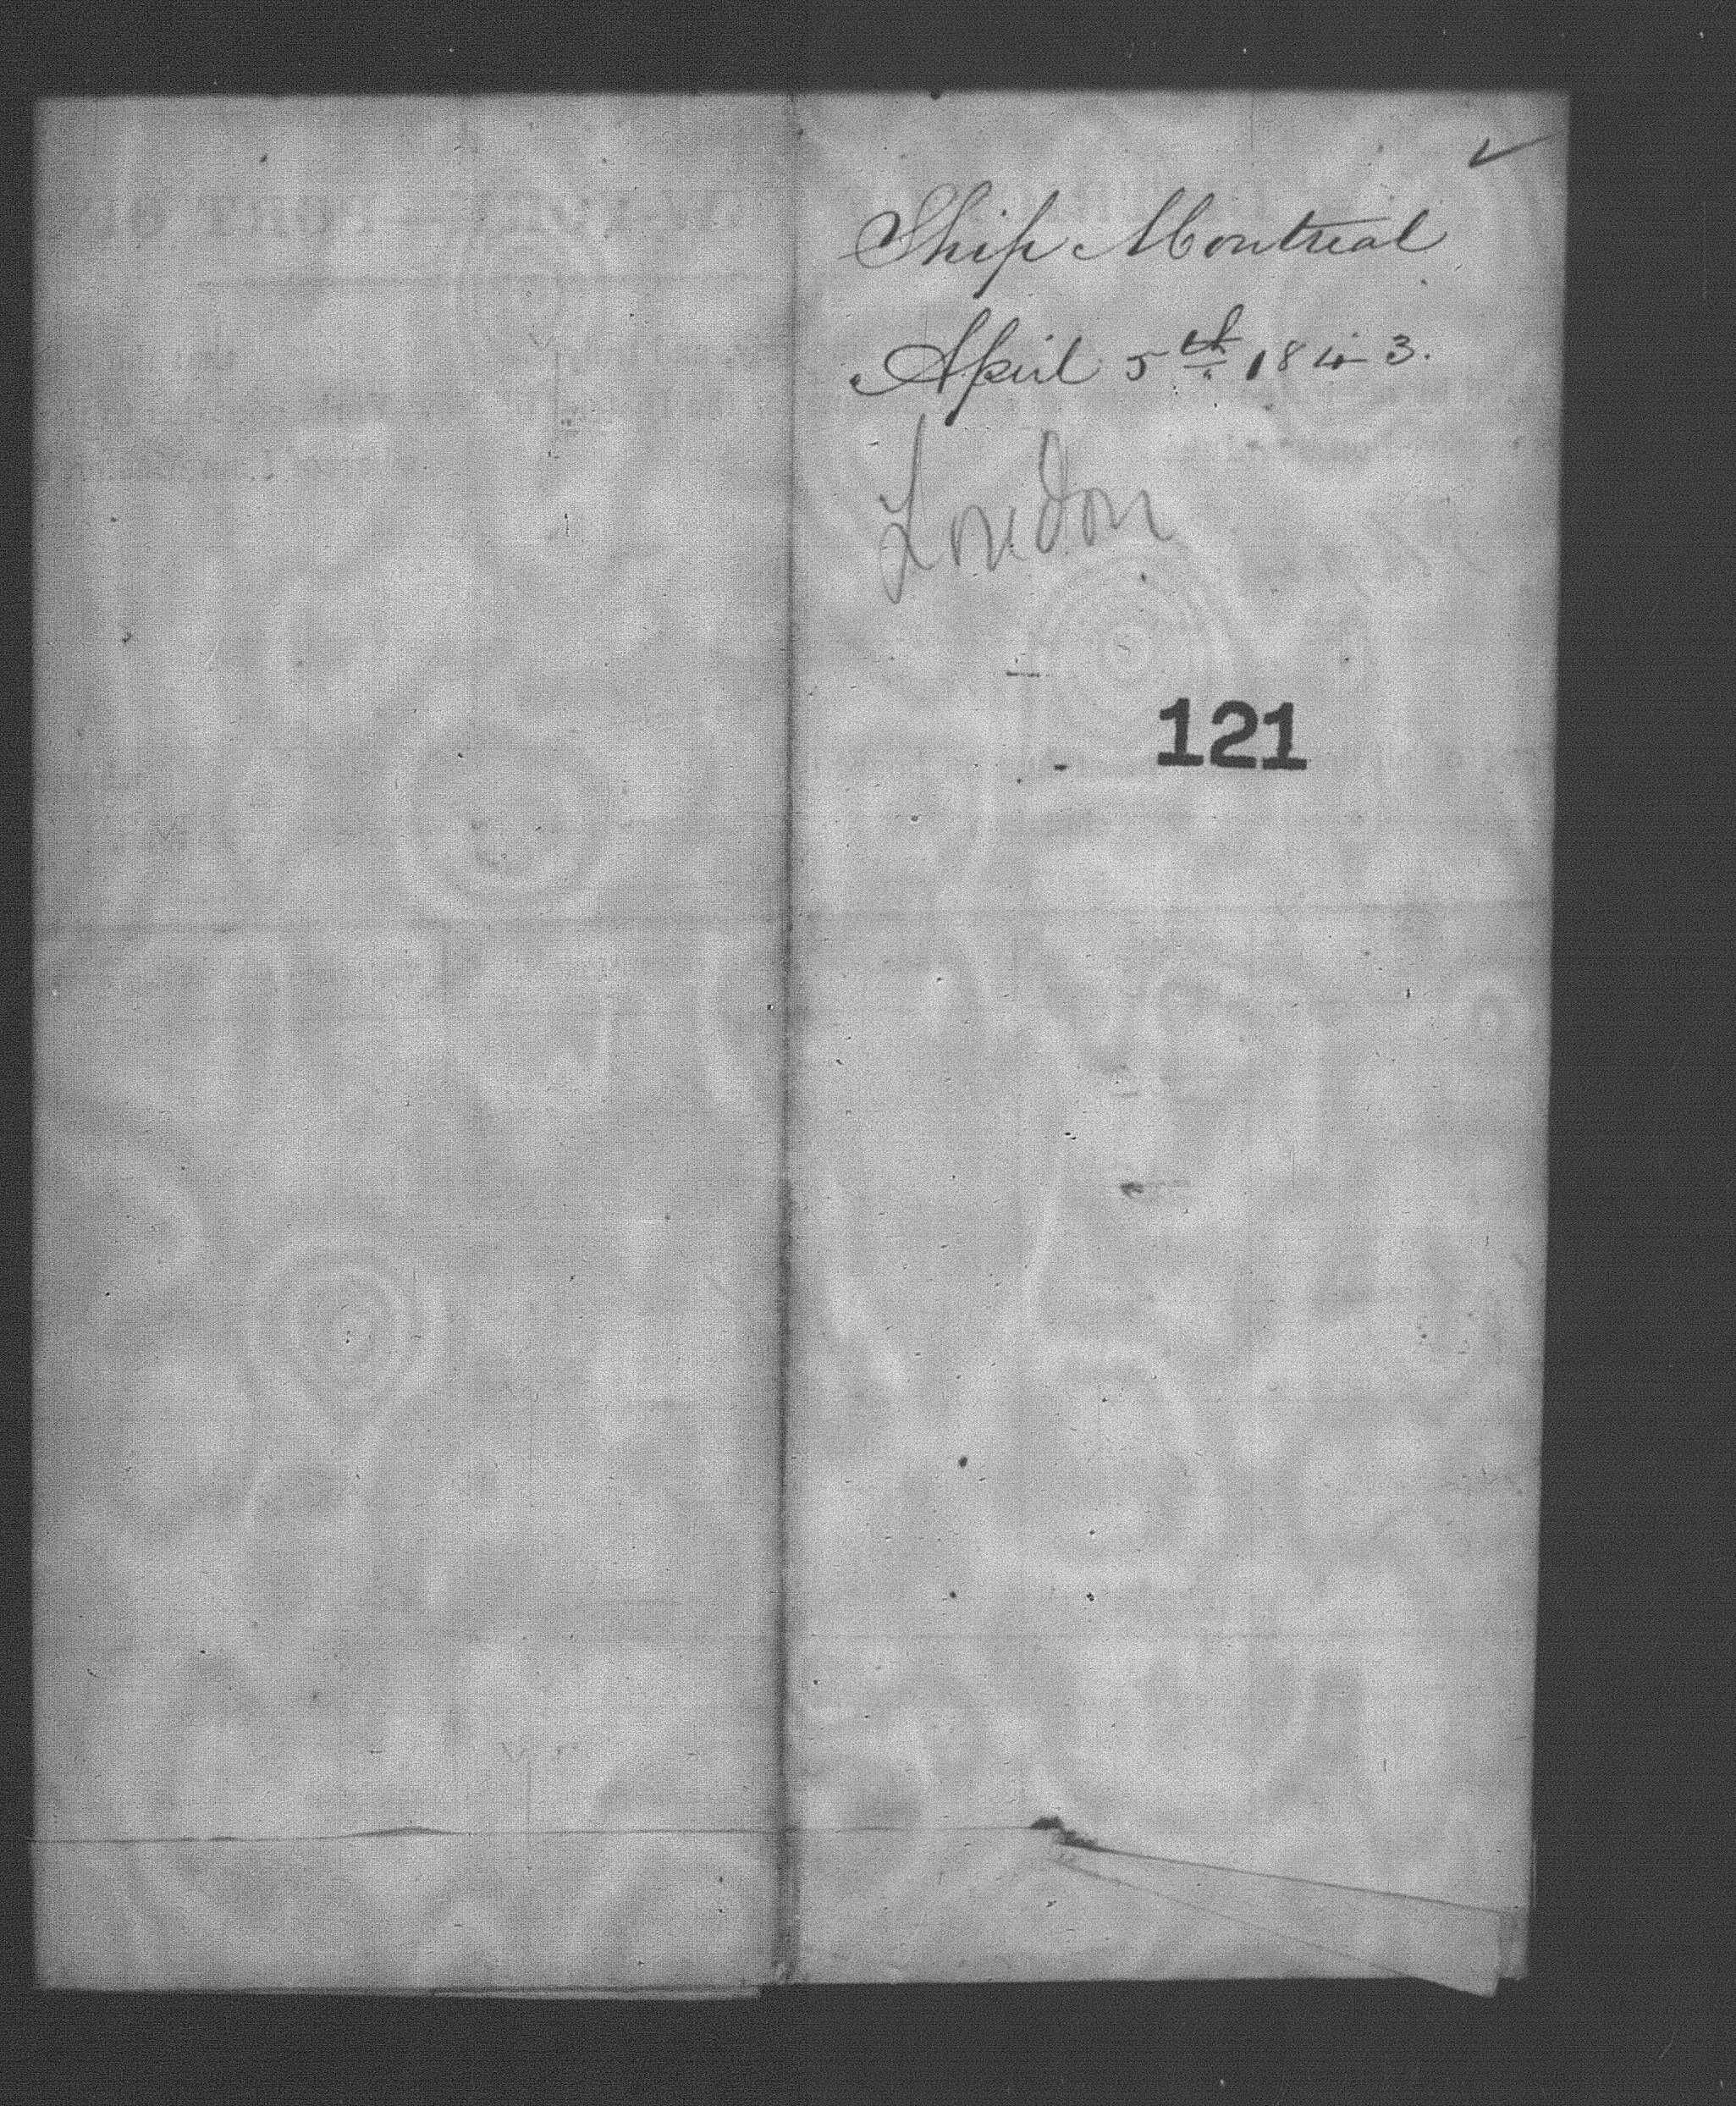 Ship Montreal
April 5th 1843.
London
121